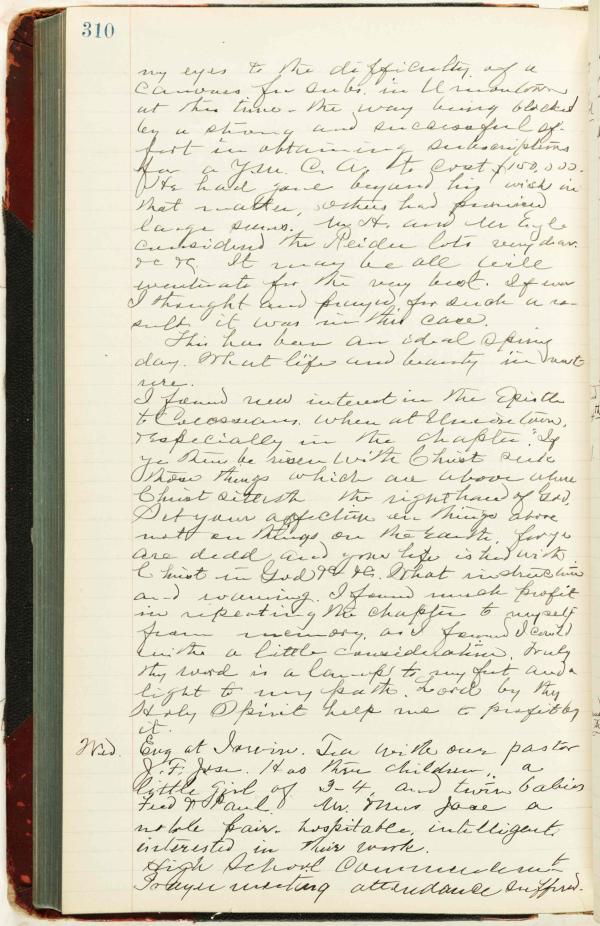 310
my eyes to the difficulty of a
canvass for subs. in Uniontown
at this time - the way being blocked
by a strong and successful ef-
fort in obtaining subscriptions
for a Y.M.C.A. to cost $150,000.
He had gone beyond his wish in
that matter, others had promised
large sums. Mr H. and Mr
considered the Reider lots very dear
&c &c. It may be all will
eventuate for the very best. If ever
I thought and prayed for such a re-
sult, it was in this case.
This has been an ideal spring
day. What life and beauty in nat
ure.
I found new interest in the Epistle
to Colossians. when at Uniontown,
especially in the chapter "If
ye then be risen with Christ seek
those things which are above where
Christ sitteth the right hand of God.
Set your affection on things above
not on things on the Earth, for ye
are dead and your life is hid with
Christ in God &c &c. What instruction
and warning. I found much profit
in repeating the chapter to myself
from memory, as I found I could
with a little consideration. Truly
thy word is a lamp to my feet and a
light to my path. Lord by thy
Holy Spirit help me to profit by
it.
Wed. Evg at Irwin. Tea with our pastor
J. F. Jose. Has three children, a
little girl of 3-4, and twin babies
Fred & Paul. Mr. & Mrs Jose a
noble pair. hospitable, intelligent,
interested in their work.
High School Commencement
Prayer meeting attendance suffered.